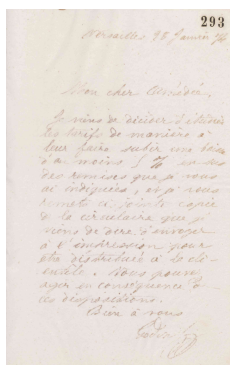 293
Versailles 25 Janvier
Mon cher Amédée,
Je viens de décider d'étendre
les tarifs de manière à
leur faire subir une baisse
d'au moins 5 % en sus
des remises que je vous
ai indiquées, et je vous
remets ci-jointe copie
de la circulaire que je
viens de dire d'envoyer
à l'impression pour
être distribuée à la cli-
entèle. Vous pouvez
agir en conséquence de
ces dispositions.
Bien à vous
Godin